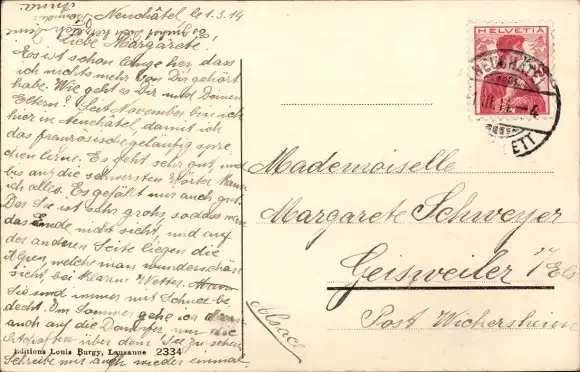 Neuchâtel, le 1.3.14
Liebe Margarete!
Es ist schon lange her, dass
ich nichts mehr von Dir gehört
habe. Wie geht es Dir und Deinen
Eltern? Seit November bin ich
hier in Neuchâtel, damit ich
das französische geläufig spre
chen lerne. Es geht sehr gut, und
bis auf die schwersten Wörter kann
ich alles. Es gefällt mir auch gut.
Der See ist sehr gross, sodass man
das Ende nicht sieht, und auf
der anderen Seite liegen die
Alpen, welche man wunderschön
sieht bei klarem Wetter.
Sie sind immer mit Schnee be
deckt. Im Sommer gehe ich dann
auch auf die Dampfer, um die
über dem See zu sehen.
Schreibe mir auch wieder einmal
Editions Louis Burgy, Lausanne 2334
HELVETIA
NEUCHATEL
Mademoiselle
Margarete Schweyer
Geisweiler i/Els
Post Wickersheim
Alsace